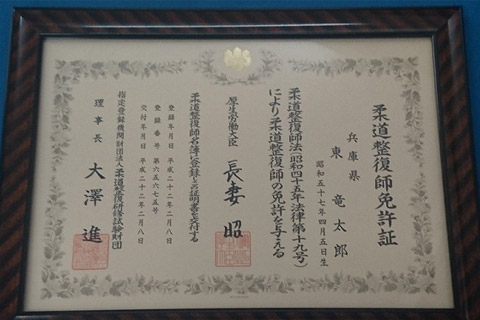 柔道整復師免許証
兵庫県
東 竜太郎
昭和五十七年四月五日生
柔道整復師法(昭和四十五年法律第十九号)
により柔道整復師の免許を与える
厚生労働大臣 長妻 昭
柔道整復師名簿に登録した証明書を交付する
登録年月日 平成二十二年二月八日
登録番号 第六五六七五号
交付年月日 平成二十二年二月八日
指定登録機関財団法人柔道整復研修試験財団
理事長 大澤 進